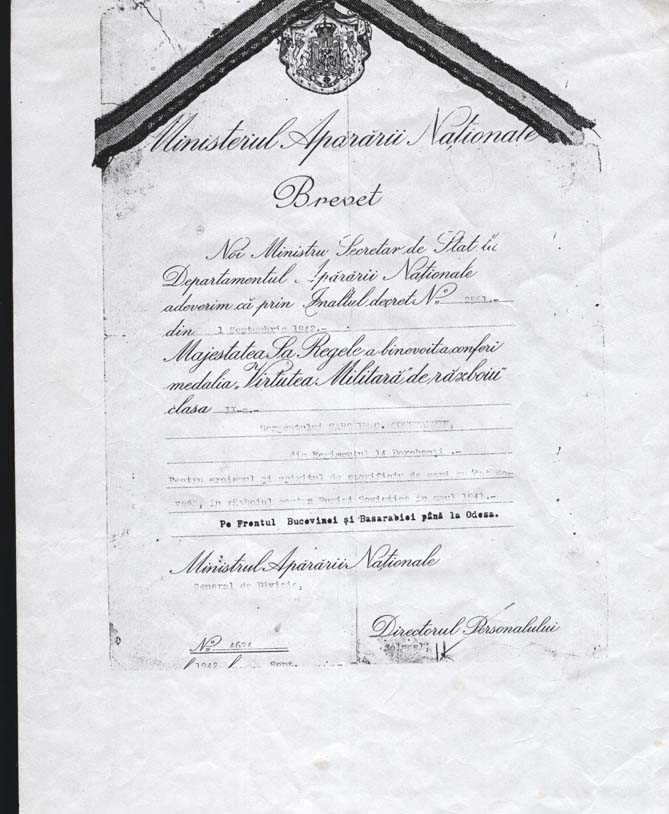 Ministerul Apărării Naționale
Brevet
Noi Ministru Secretar de Stat la
Departamentul Apărării Naționale
adeverim că prin Inaltul decret No. 2561.-
din 1 Septembrie 1942.-
Majestatea Sa Regele a binevoit a conferi
medalia „Virtutea Militară" de războiu"
clasa II-a.-
Sergentului
din Regimentul 14 Dorobanți .-
Pentru eroismul și spiritul de sacrificiu de care au dat do-
vadă, în războiul contra Rusiei Sovietice în anul 1941.-
Pe Frontul Bucovinei și Basarabiei până la Odesa.
Ministrul Apărării Naționale
General de Divizie,
Directorul Personalului
Colonel,
No.
1942 Sept.